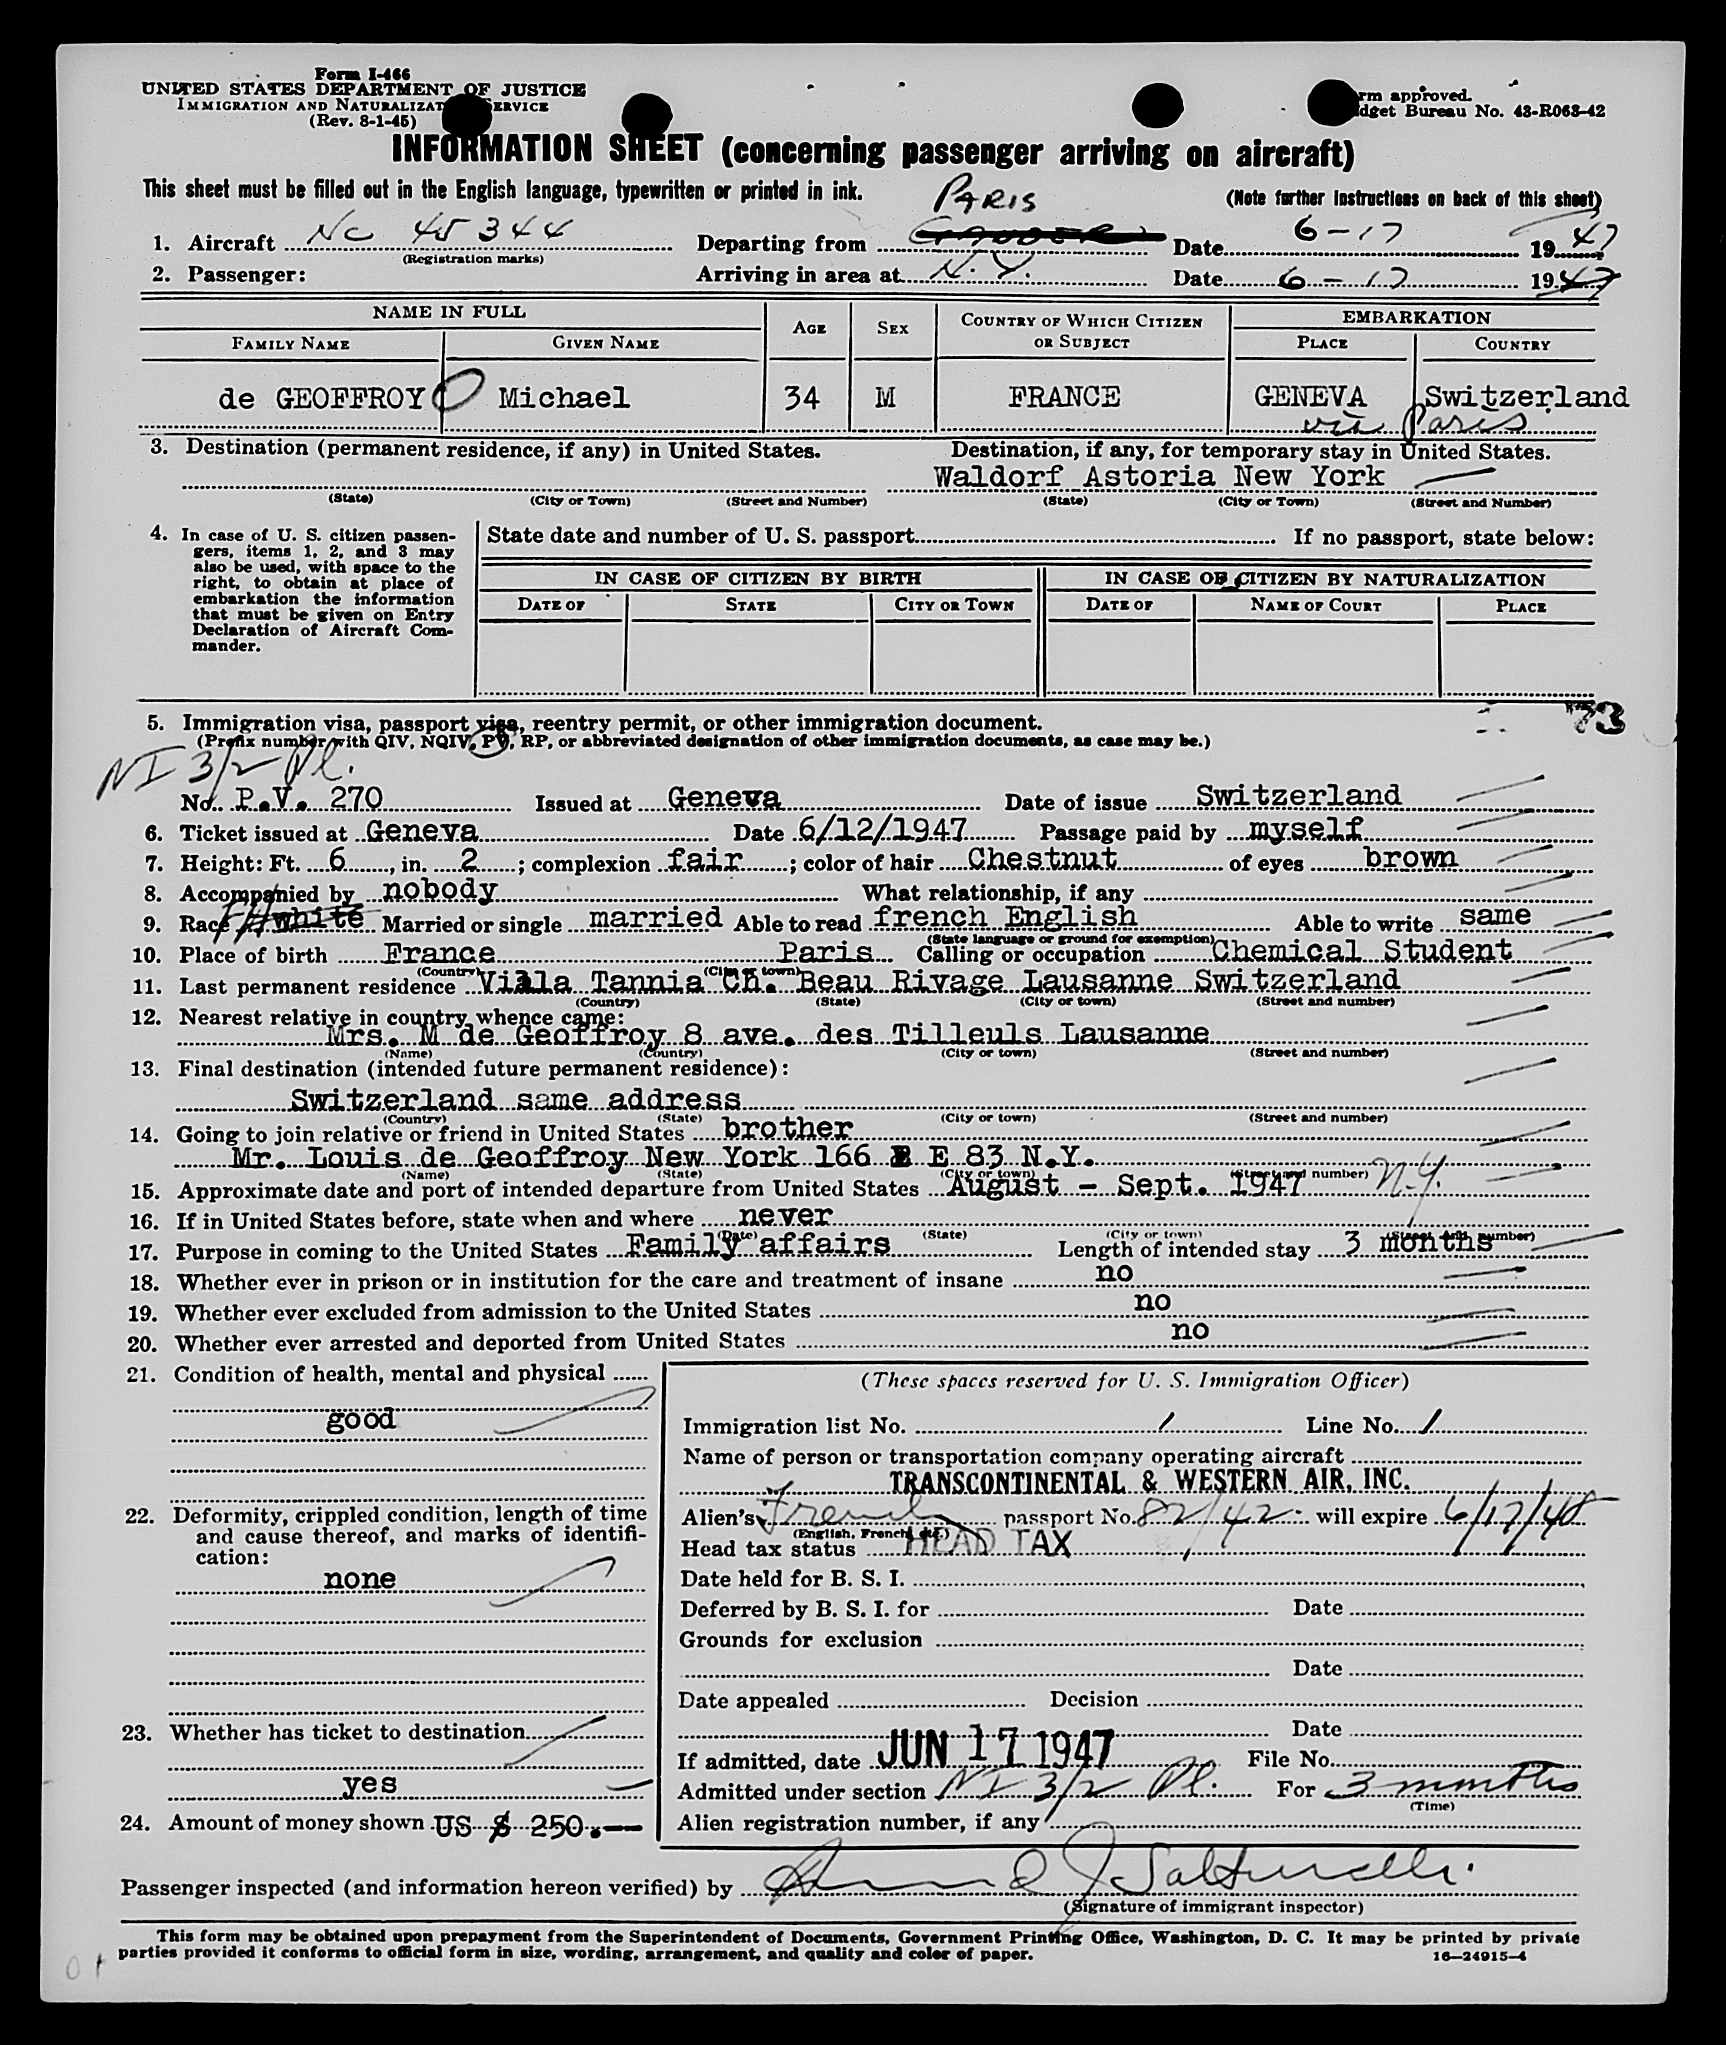 Form I-466
UNITED STATES DEPARTMENT OF JUSTICE
IMMIGRATION AND NATURALIZAT SERVICE
(Rev. 8-1-45)
rm approved.
dget Bureau No. 43-R063-42
INFORMATION SHEET (concerning passenger arriving on aircraft)
This sheet must be filled out in the English language, typewritten or printed in ink.
(Note further instructions on back of this sheet)
PARIS
1. Aircraft NC 45344 Departing from Date 6-17 1947
(Registration marks)
2. Passenger: Arriving in area at N.Y. Date 6-17 1947
NAME IN FULL AGE SEX COUNTRY OF WHICH CITIZEN OR SUBJECT EMBARKATION
FAMILY NAME GIVEN NAME PLACE COUNTRY
de GEOFFROY Michael 34 M FRANCE GENEVA Switzerland
via Paris
3. Destination (permanent residence, if any) in United States. Destination, if any, for temporary stay in United States.
Waldorf Astoria New York
(State) (City or Town) (Street and Number) (State) (City or Town) (Street and Number)
4. In case of U. S. citizen passen-
gers, items 1, 2, and 3 may
also be used, with space to the
right, to obtain at place of
embarkation the information
that must be given on Entry
Declaration of Aircraft Com-
mander.
State date and number of U. S. passport If no passport, state below:
IN CASE OF CITIZEN BY BIRTH IN CASE OF CITIZEN BY NATURALIZATION
DATE OF STATE CITY OR TOWN DATE OF NAME OF COURT PLACE
73
5. Immigration visa, passport visa, reentry permit, or other immigration document.
(Prefix number with QIV, NQIV, PV, RP, or abbreviated designation of other immigration documents, as case may be.)
NI 3/2 Pl.
No. P.V. 270 Issued at Geneva Date of issue Switzerland
6. Ticket issued at Geneva Date 6/12/1947 Passage paid by myself
7. Height: Ft. 6, in. 2; complexion fair; color of hair Chestnut of eyes brown
8. Accompanied by nobody What relationship, if any
9. Race white Married or single married Able to read french English Able to write same
(State language or ground for exemption)
10. Place of birth France Paris Calling or occupation Chemical Student
(Country) (City or town)
11. Last permanent residence Villa Tannia Ch. Beau Rivage Lausanne Switzerland
(Country) (State) (City or town) (Street and number)
12. Nearest relative in country whence came:
Mrs. M de Geoffroy 8 ave. des Tilleuls Lausanne
(Name) (Country) (City or town) (Street and number)
13. Final destination (intended future permanent residence):
Switzerland same address
(Country) (State) (City or town) (Street and number)
14. Going to join relative or friend in United States brother
Mr. Louis de Geoffroy New York 166 E 83 N.Y.
(Name) (State) (City or town) (Street and number)
15. Approximate date and port of intended departure from United States August - Sept. 1947 N.Y.
16. If in United States before, state when and where never
(Date) (State) (City or town) (Street and number)
17. Purpose in coming to the United States Family affairs Length of intended stay 3 months
18. Whether ever in prison or in institution for the care and treatment of insane no
19. Whether ever excluded from admission to the United States no
20. Whether ever arrested and deported from United States no
21. Condition of health, mental and physical
good
22. Deformity, crippled condition, length of time
and cause thereof, and marks of identifi-
cation:
none
23. Whether has ticket to destination
yes
24. Amount of money shown US $ 250.—
(These spaces reserved for U. S. Immigration Officer)
Immigration list No. 1 Line No. 1
Name of person or transportation company operating aircraft
TRANSCONTINENTAL & WESTERN AIR, INC.
Alien's French passport No. 82/42 will expire 6/17/48
(English, French, etc.)
Head tax status HEAD TAX
Date held for B. S. I.
Deferred by B. S. I. for Date
Grounds for exclusion
Date
Date appealed Decision
Date
If admitted, date JUN 17 1947 File No.
Admitted under section NI 3/2 Pl. For 3 months
(Time)
Alien registration number, if any
Passenger inspected (and information hereon verified) by
(Signature of immigrant inspector)
This form may be obtained upon prepayment from the Superintendent of Documents, Government Printing Office, Washington, D. C. It may be printed by private
parties provided it conforms to official form in size, wording, arrangement, and quality and color of paper.
16—24915-4